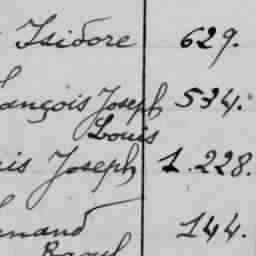 Isidore 629.
ançois Joseph 534.
Louis
is Joseph 1.228.
nand 144.
Raoul